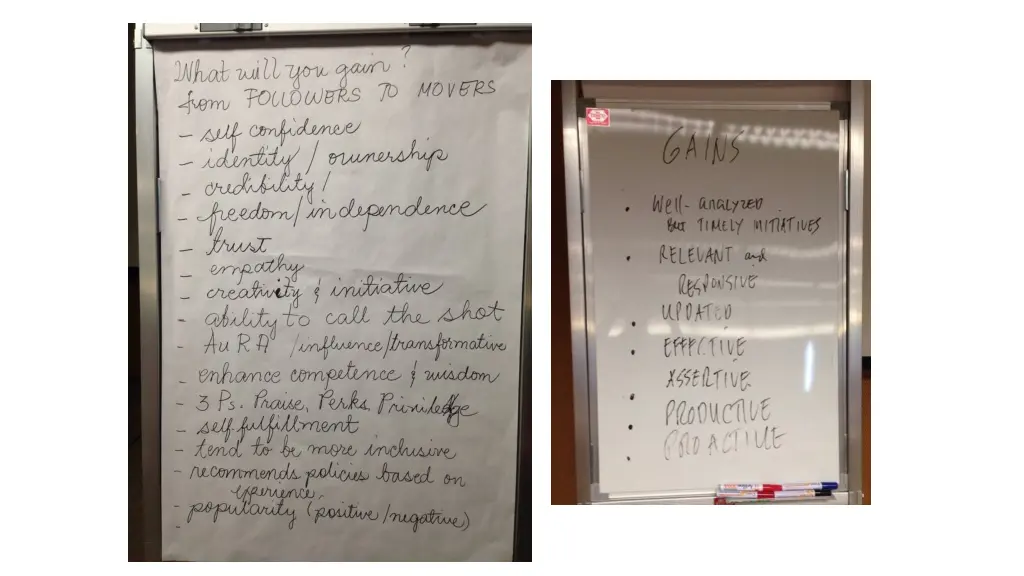 What will you gain?
from FOLLOWERS TO MOVERS
- self confidence
- identity / ownership
- credibility /
- freedom/independence
- trust
- empathy
- creativity & initiative
- ability to call the shot
- AURA /influence/transformative
- enhance competence & wisdom
- 3 Ps. Praise, Perks, Privilege
- self-fulfillment
- tend to be more inclusive
- recommends policies based on
experience,
- popularity (positive/negative)
-
GAINS
• Well-analyzed
BUT TIMELY INITIATIVES
• RELEVANT and
RESPONSIVE
• UPDATED
• EFFECTIVE
• ASSERTIVE
• PRODUCTIVE
• PROACTIVE